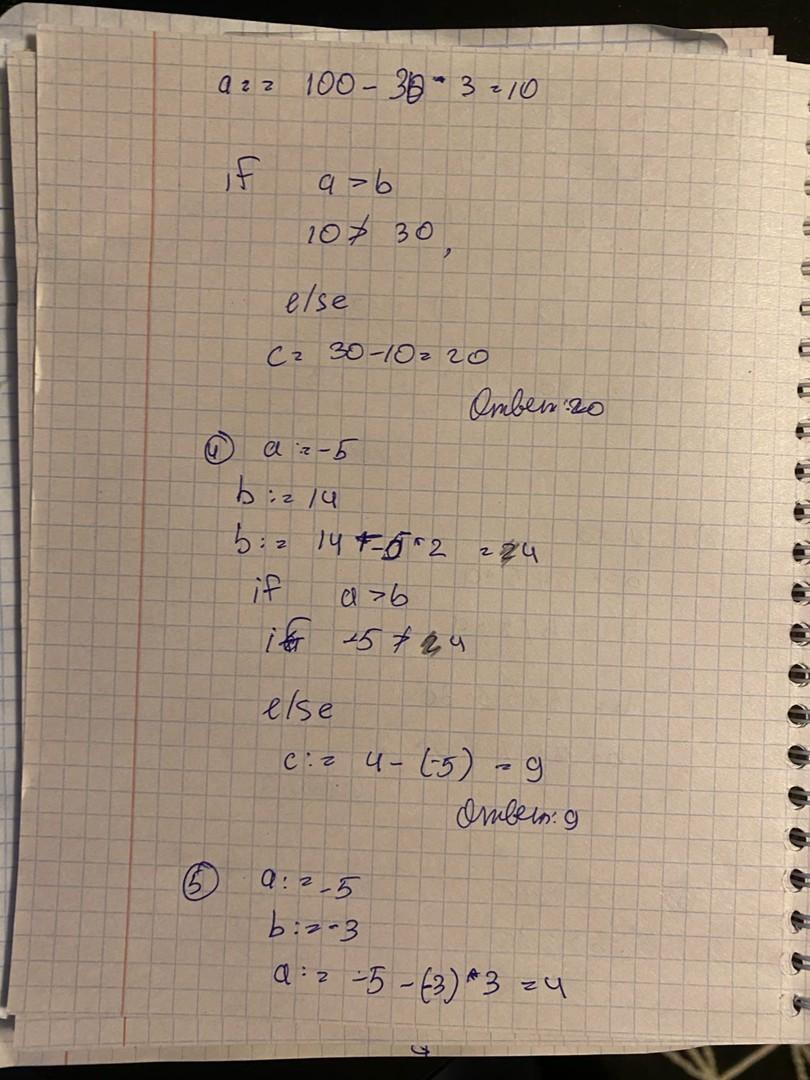 a := 100 - 30 * 3 = 10
if a > b
10 ≯ 30,
else
c = 30 - 10 = 20
Ответ: 20
④ a := -5
b := 14
b := 14 + -5 * 2 = 4
if a > b
if -5 ≯ 4
else
c := 4 - (-5) = 9
Ответ: 9
⑤ a := -5
b := -3
a := -5 - (-3) * 3 = 4